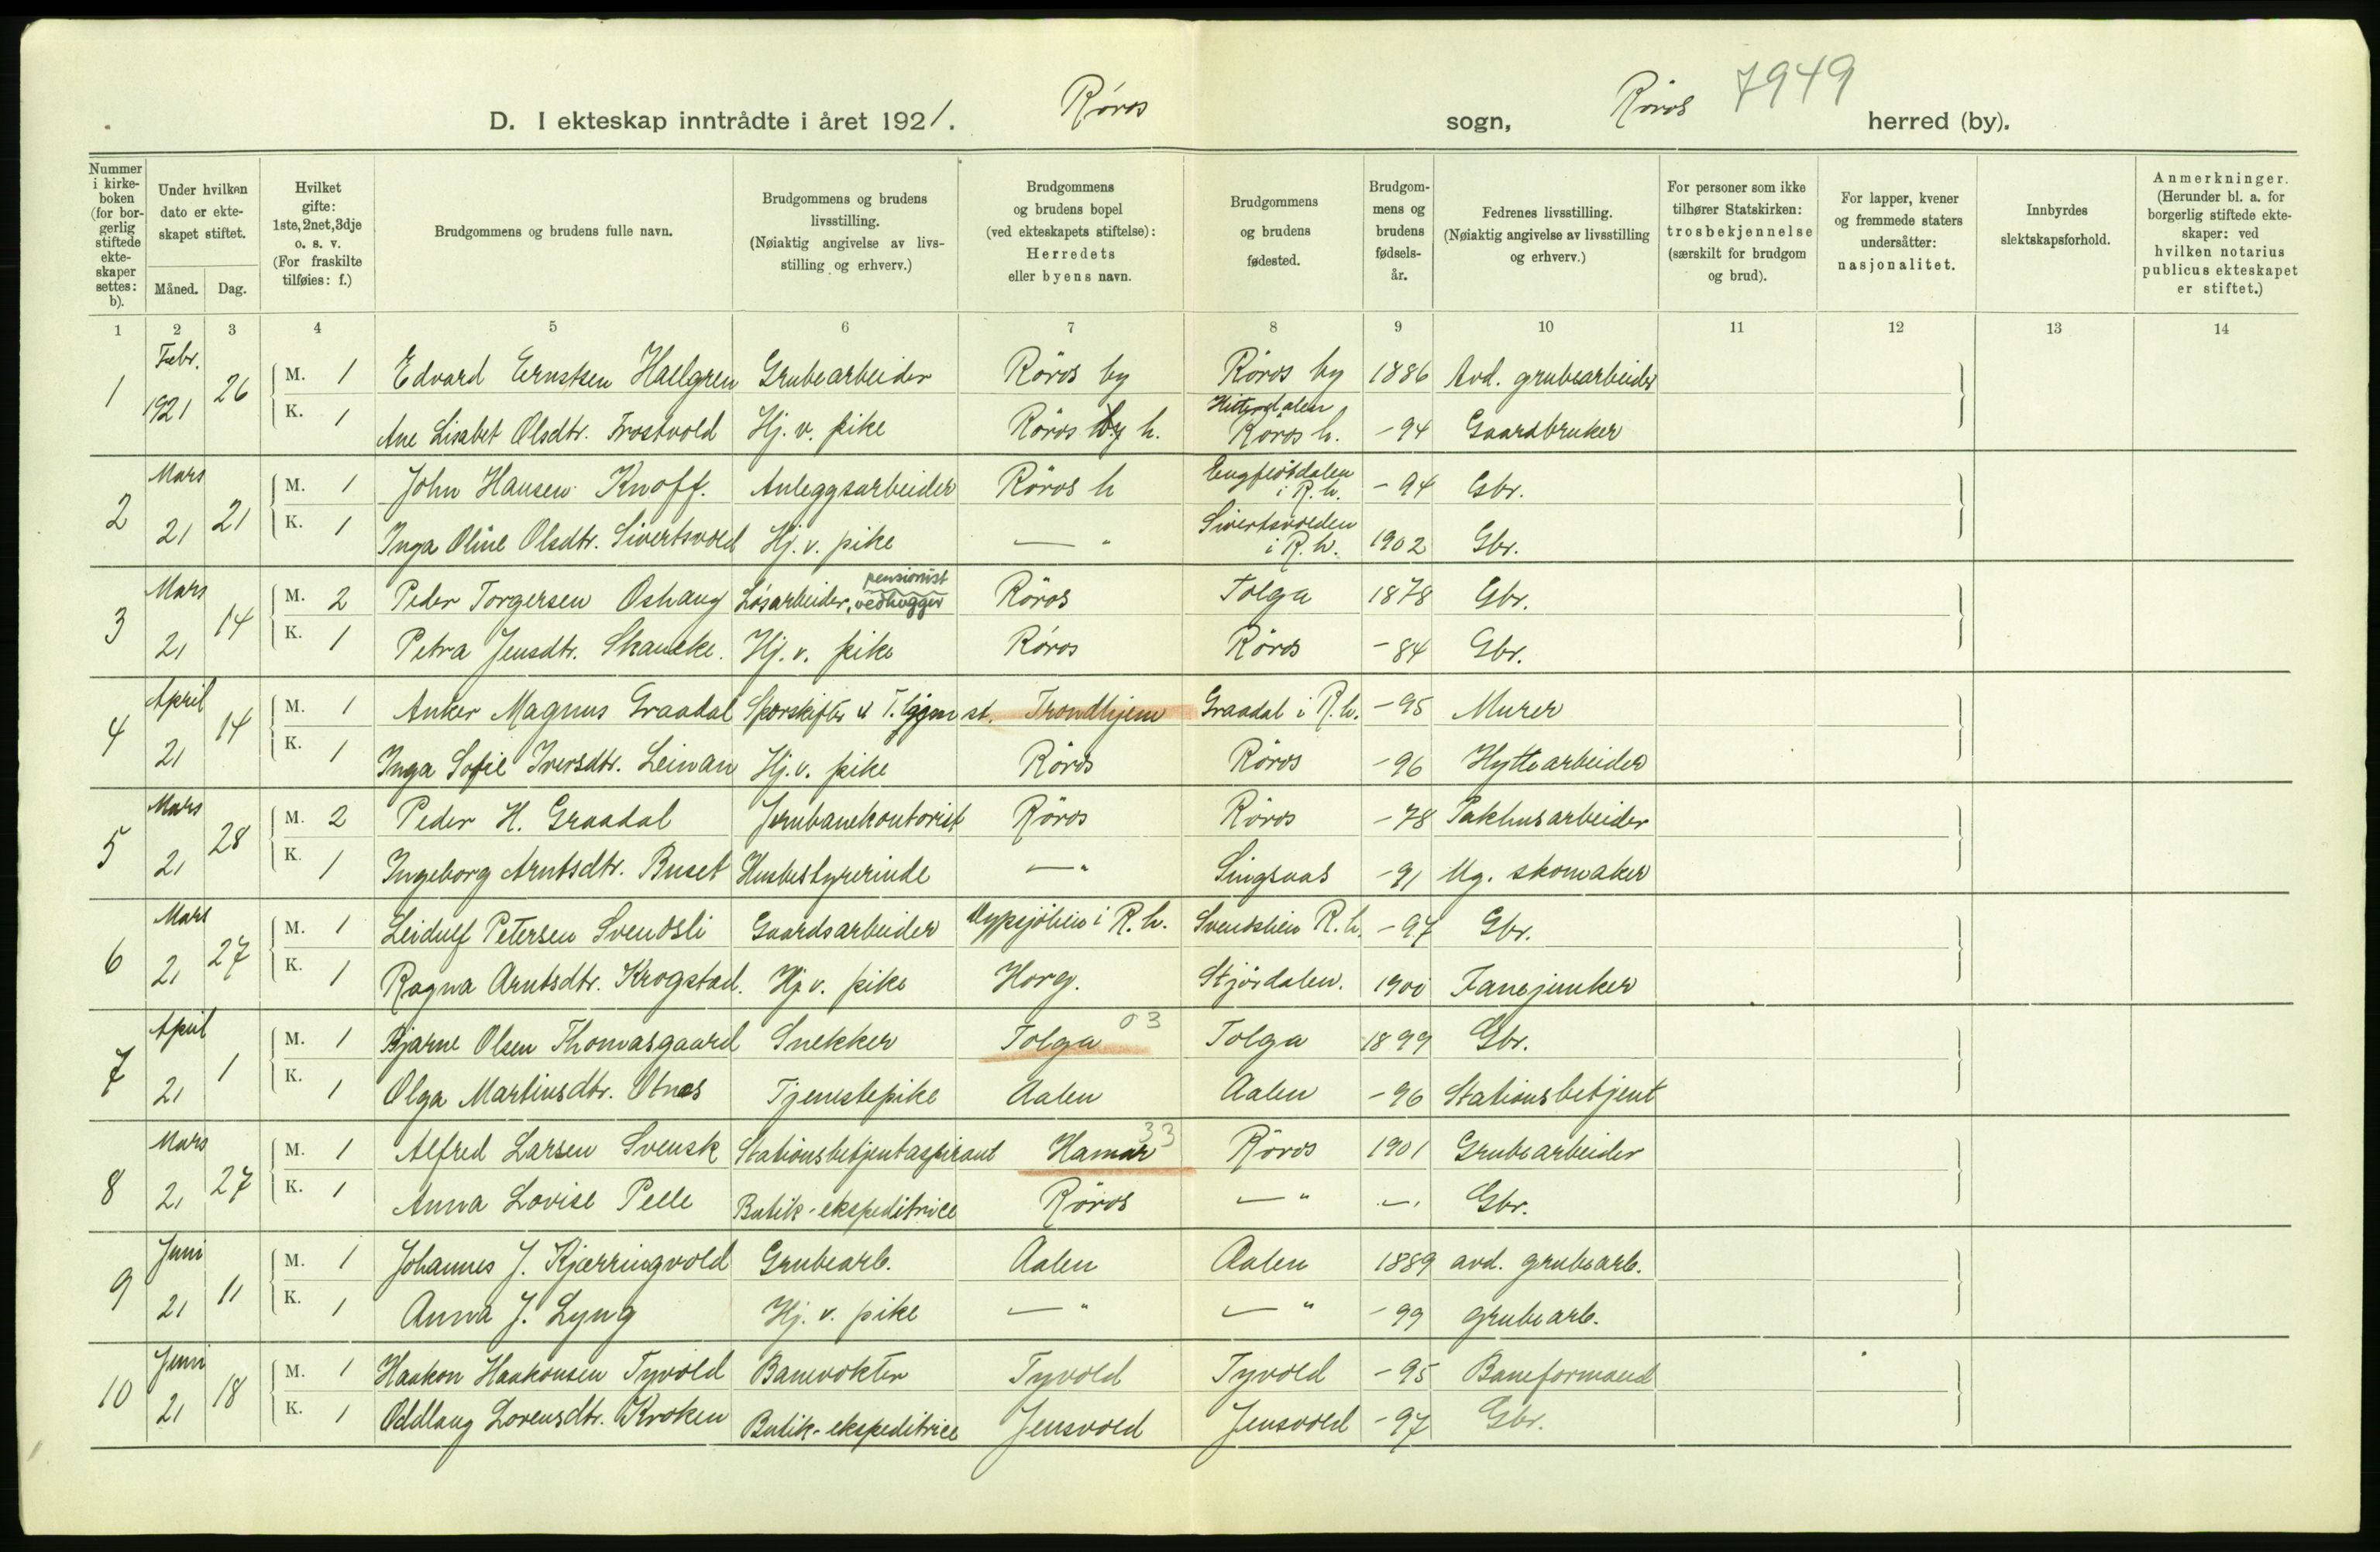 7949
D. I ekteskap inntrådte i året 1921. Røros sogn, Røros herred (by).
Nummer i kirke-boken (for bor-gerlig stiftede ekte-skaper settes: b).
Under hvilken dato er ekte-skapet stiftet.
Måned. Dag.
Hvilket gifte: 1ste, 2net, 3dje o. s. v. (For fraskilte tilføies: f.)
Brudgommens og brudens fulle navn.
Brudgommens og brudens livsstilling. (Nøiaktig angivelse av livs-stilling og erhverv.)
Brudgommens og brudens bopel (ved ekteskapets stiftelse): Herredets eller byens navn.
Brudgommens og brudens fødested.
Brudgom-mens og brudens fødsels-år.
Fedrenes livsstilling. (Nøiaktig angivelse av livsstilling og erhverv.)
For personer som ikke tilhører Statskirken: trosbekjennelse (særskilt for brudgom og brud).
For lapper, kvener og fremmede staters undersåtter: nasjonalitet.
Innbyrdes slektskapsforhold.
Anmerkninger. (Herunder bl. a. for borgerlig stiftede ekte-skaper: ved hvilken notarius publicus ekteskapet er stiftet.)
1 2 3 4 5 6 7 8 9 10 11 12 13 14
1 Febr. 1921 26 M. 1 Edvard Ernstsen Hallgren Grubearbeider Röros by Röros by 1886 Avd. grubearbeider
K. 1 Ane Lisabet Olsdtr. Trostvold Hj. v. pike Röros by h. Hitterdalen Röros h. -94 Gaardbruker
2 Mars 21 21 M. 1 John Hansen Knoff. Anleggsarbeider Röros h i R. h. -94 Gbr.
K. 1 Inga Oline Olsdtr. Sivertsvold Hj. v. pike — " Sivertsvolden i R. h. 1902 Gbr.
3 Mars 21 14 M. 2 Peder Torgersen Oshaug Løsarbeider, vedhugger pensionist Röros Tolga 1878 Gbr.
K. 1 Petra Jensdtr. Skancke. Hj. v. pike Röros Röros -84 Gbr.
4 April 21 14 M. 1 Anker Magnus Graadal Sporskifter st. Trondhjem Graadal i R. h. -95 Murer
K. 1 Inga Sofie Iversdtr. Leinan Hj. v. pike Röros Röros -96 Hyttearbeider
5 Mars 21 28 M. 2 Peder H. Graadal Jernbanekontorist Röros Röros -78 Pakhusarbeider
K. 1 Ingeborg Arntsdtr. Buset Husbestyrerinde — " Singsaas -91 Ug. skomaker
6 Mars 21 27 M. 1 Leidulf Petersen Svendsli Gaardsarbeider i R. h. Svendslien R. h. -97 Gbr.
K. 1 Ragna Arntsdtr. Krogstad. Hj. v. pike Horg. Stjördalen. 1900 Fanejunker
7 April 21 1 M. 1 Bjarne Olsen Thomasgaard Snekker Tolga 03 Tolga 1899 Gbr.
K. 1 Olga Martinsdtr. Otnes Tjenestepike Aalen Aalen -96 Stationsbetjent
8 Mars 21 27 M. 1 Alfred Larsen Svensk Stationsbetjentaspirant Hamar 33 Röros 1901 Grubearbeider
K. 1 Anna Lovise Pelle Butik-ekspeditrice Röros — " — Gbr.
9 Juni 21 11 M. 1 Johannes J. Kjærringvold Grubearb. Aalen Aalen 1889 avd. grubearb.
K. 1 Anna J. Lyng Hj. v. pike — " — " -99 grubearb.
10 Juni 21 18 M. 1 Haakon Haakonsen Tyvold Banevokter Tyvold Tyvold -95 Baneformand
K. 1 Oddlaug Lorensdtr. Kroken Butik-ekspeditrice Jensvold Jensvold -97 Gbr.